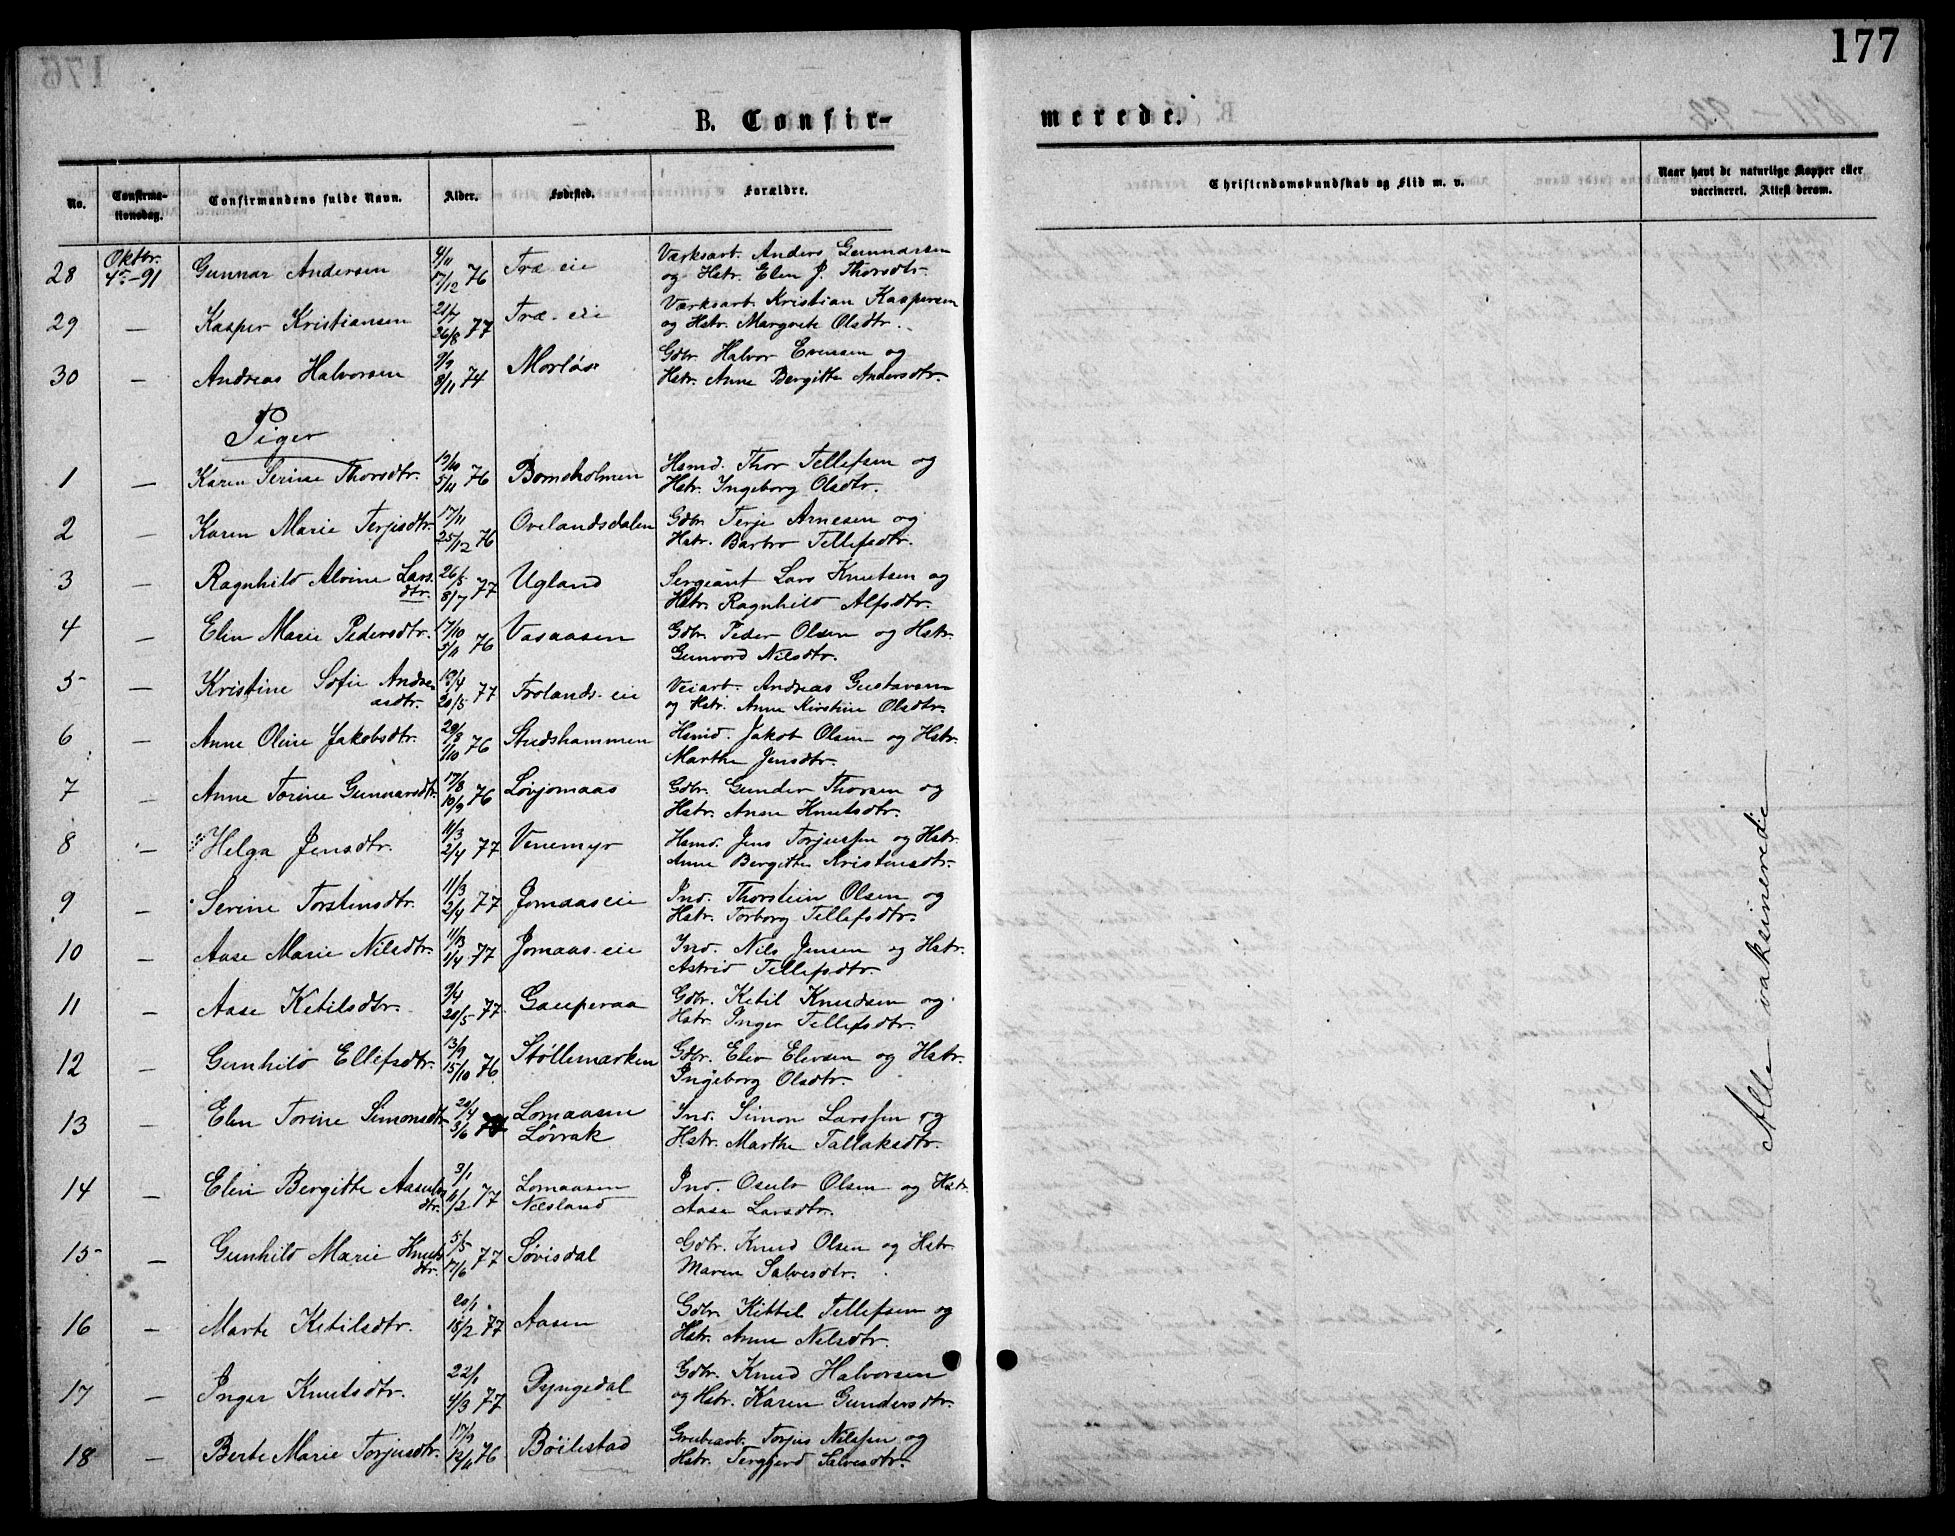 177
B. Confir-
merede.
No.
Confirma-
tionsdag.
Confirmandens fulde Navn.
Alder.
Fødested.
Forældre.
Christendomskundskab og Flid m. v.
Naar havt de naturlige Kopper eller
vaccineret. Attest derom.
28 Oktbr. 4de-91 Gunnar Andersen 4/11 17/12 76 Træ-eie Værksarb. Anders Gunnarsen
og Hstr. Elen J. Thorsdtr.
29 — Kasper Kristiansen 21/7 26/8 77 Træ-eie Værksarb. Kristian Kaspersen
og Hstr. Margrete Olsdtr.
30 — Andreas Halvorsen 9/9 8/11 74 Gdbr. Halvor Evensen og
Hstr. Anne Bergitte Andersdtr.
Piger
1 — Karen Serine Thorsdtr. 19/10 5/11 76 Bomsholmen Hsmd. Thor Tellefsen og
Hstr. Ingeborg Olsdtr.
2 — Karen Marie Terjesdtr. 17/11 25/12 76 Ovelandsdalen Gdbr. Terje Arnesen og
Hstr. Barbro Tellefsdtr.
3 — Ragnhild Alvine Lars-
dtr. 26/5 8/7 77 Ugland Sergeant Lars Knutsen og
Hstr. Ragnhild Alfsdtr.
4 — Elen Marie Pedersdtr. 17/10 5/11 76 Vasaasen Gdbr. Peder Olsen og Hstr.
Gunvord Nilsdtr.
5 — Kristine Sofie Andre-
asdtr. 13/4 20/5 77 Frolands-eie Veiarb. Andreas Gustavsen
og Hstr. Anne Kirstine Olsdtr.
6 — Anne Oline Jakobsdtr. 29/8 1/10 76 Studshammen Hsmd. Jakob Olsen og Hstr.
Marthe Jensdtr.
7 — Anne Torine Gunnarsdtr. 17/8 10/9 76 Løvjomaas Gdbr. Gunder Thorsen og
Hstr. Anne Knutsdtr.
8 — Helga Jensdtr. 11/3 2/4 77 Venemyr Hsmd. Jens Torjussen og Hstr.
Anne Bergitte Kristensdtr.
9 — Serine Torstensdtr. 11/3 2/4 77 Jomaaseie Ind. Thorstein Olsen og
Hstr. Torborg Tellefsdtr.
10 — Aase Marie Nilsdtr. 11/3 1/4 77 Jomaas-eie Ind. Nils Jensen og Hstr.
Astrid Tellefsdtr.
11 — Aase Ketilsdtr. 9/4 20/5 77 Gauperaa Gdbr. Ketil Knudsen og
Hstr. Inger Tellefsdtr.
12 — Gunhild Ellefsdtr. 13/9 15/10 76 Støllemarken Gdbr. Elev Elevsen og Hstr.
Ingeborg Olsdtr.
13 — Elen Torine Simonsdtr. 20/4 3/6 Lomaasen
Løvrak Ind. Simon Larssen og
Hstr. Marthe Tallaksdtr.
14 — Elen Bergitte Aasulv-
dtr. 3/1 11/2 77 Lomaasen
Næsland Ind. Osulv Olsen og Hstr.
Aase Larsdtr.
15 — Gunhild Marie Knuts-
dtr. 5/5 17/6 77 Søvisdal Gdbr. Knud Olsen og Hstr.
Maren Salvesdtr.
16 — Marte Ketilsdtr. 20/1 18/2 77 Aasen Gdbr. Kittel Tellefsen og
Hstr. Anne Nilsdtr.
17 — Inger Knutsdtr. 22/1 4/3 77 Gdbr. Knud Halvorsen
og Hstr. Karen Gundersdtr.
18 — Berte Marie Torjusdtr. 17/9 12/11 76 Bøilestad Grubearb. Torjus Nilssen og
Hstr. Tergjerd Salvesdtr.
Alle vaksinerede